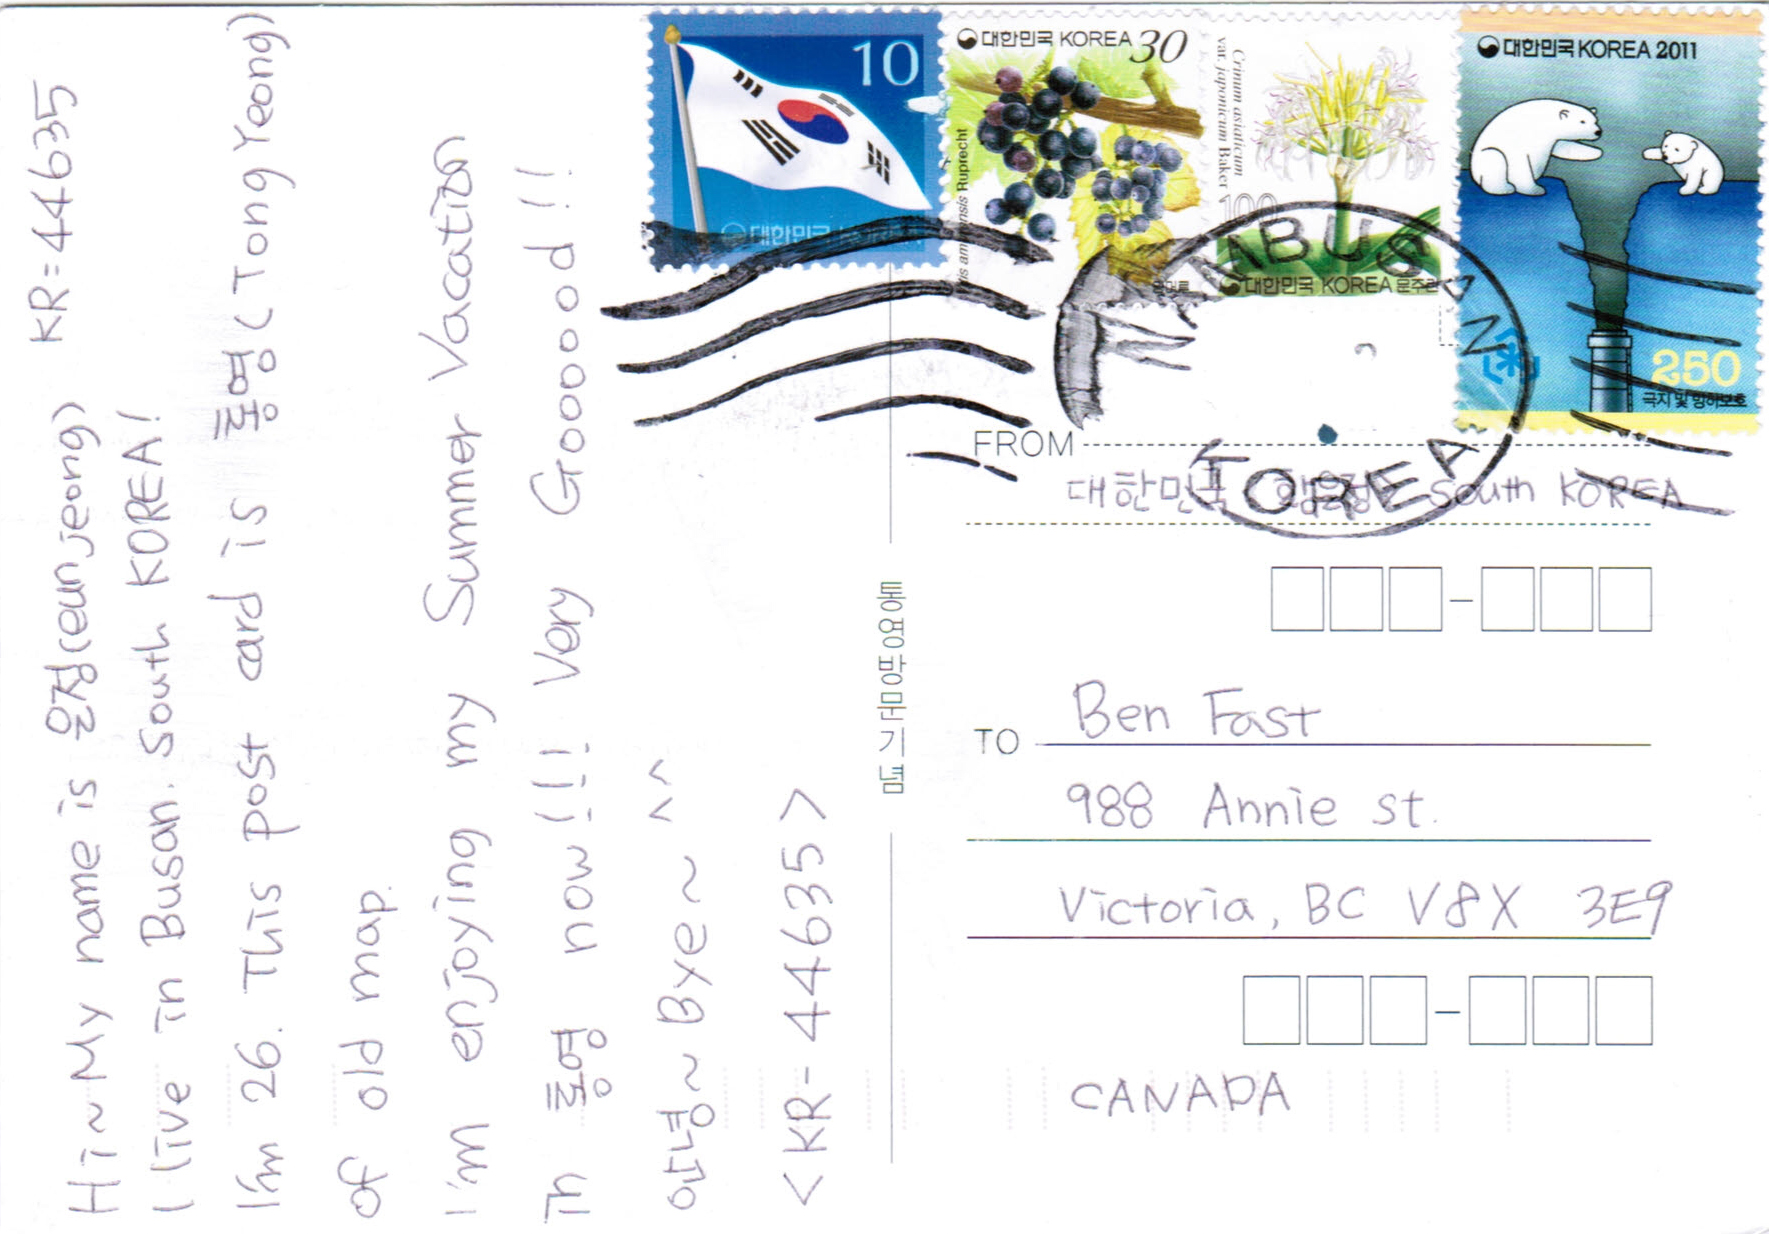 KR=44635
Hi~ My name is 은정(eunjeong)
I live in Busan. South KOREA!
I'm 26. This post card is 통영(Tong Yeong)
of old map.
I'm enjoying my Summer Vacation
in 통영 now!!! Very Goooood!!
안녕~ Bye~ ^^
<KR-44635>
통영방문기념
10
대한민국 KOREA
대한민국 KOREA 30
Ruprecht
Crinum asiaticum
var. japonicum Baker
100
대한민국 KOREA 문주란
대한민국 KOREA 2011
250
극지 및 빙하보호
BUSAN
KOREA
FROM
대한민국 South KOREA
TO
Ben Fast
988 Annie st.
Victoria, BC V8X 3E9
CANADA